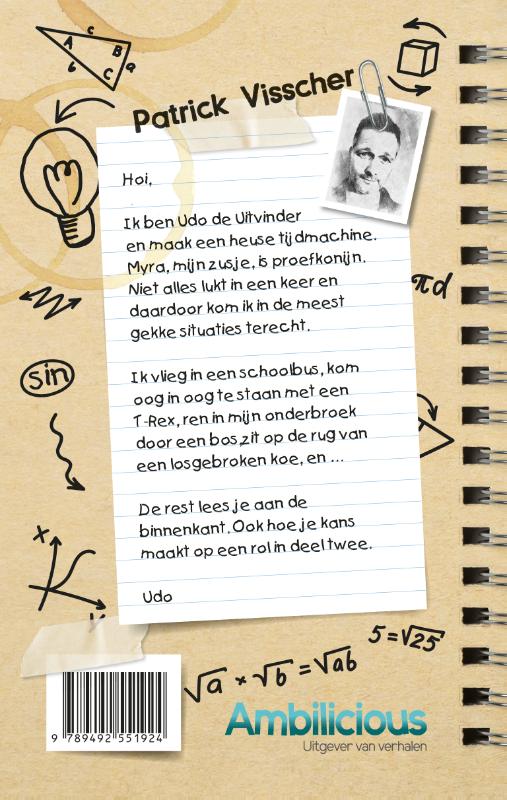 c
A
B
b
C
a
Patrick Visscher
Hoi,
Ik ben Udo de Uitvinder
en maak een heuse tijdmachine.
Myra, mijn zusje, is proefkonijn.
Niet alles lukt in een keer en
daardoor kom ik in de meest
gekke situaties terecht.
πd
sin
Ik vlieg in een schoolbus, kom
oog in oog te staan met een
T-Rex, ren in mijn onderbroek
door een bos,zit op de rug van
een losgebroken koe, en ...
De rest lees je aan de
binnenkant. Ook hoe je kans
maakt op een rol in deel twee.
x
y
Udo
5=√25
√a × √b = √ab
Ambilicious
Uitgever van verhalen
9 789492 551924